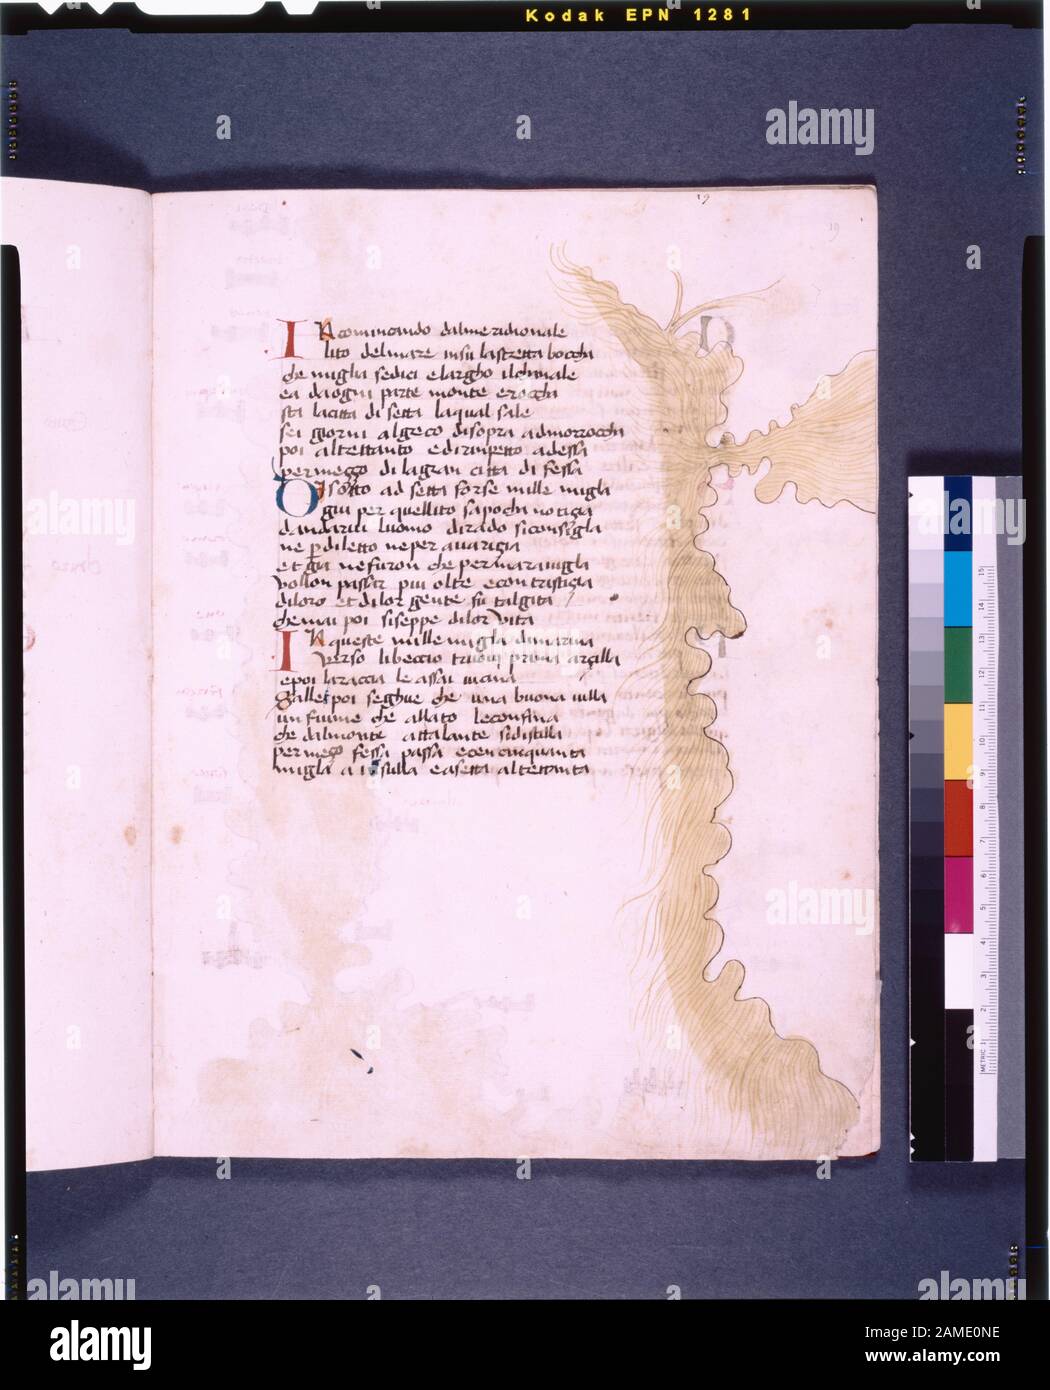 Kodak EPN 1281
19
19
In comincando dalmeridionale
lito del mare insu lastretta boccha
che miglia sedici e largho ilchanale
ea daogni parte monte e roccha
sta lacitta di setta laqual sale
sei giorni al greco di sopra a dmorroccha
poi altettanto e dirimpetto adessa
per mezzo di la gran citta di fessa
Disotto ad setta forse mille miglia
giu per quellito sapocha notizia
dandarui luomo dirado siconsiglia
ne p diletto ne per auarizia
et gia ne furon che per marauiglia
vollon passar piu oltre e con tristizia
diloro et di lor gente fu talgita
che mai poi siseppe di lor vita
In queste mille miglia di marina
verso libeccio truoui prima arzilla
e poi laraccia le assai uicina
Salle poi seghue che una buona uilla
un fiume che allato le confina
che dal monte attalante si distilla
per mezo fessa passa e cen cinquanta
miglia a insulla e asetta altettanta
METRIC 1 2 3 4 5 6 7 8 9 10 11 12 13 14 15
alamy
Image ID: 2AME0NE
www.alamy.com